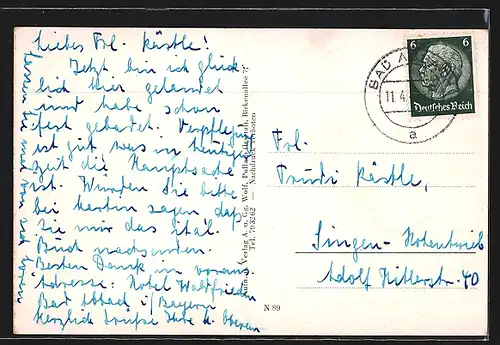 Liebes Frl. Kästle!
Jetzt bin ich glück
lich hier gelandet
und habe schon
fest gebadet. Verpfleg.
ist gut was in heutiger
Zeit die Hauptsache
ist. Würden Sie bitte
bei Martin sagen daß
Sie mir das Ital.
Buch nachsenden.
Besten Dank im voraus
Adresse: Hotel Waldfrieden
Bad Abbach i/Bayern
Herzlich Grüße Ihre
Lassen Sie mal von sich hören
Verlag A. u. Gg. Wolf, Birkenallee
Tel. 793262 — Nachdruck verboten
N 89
BAD A
11.4.
a
6 6
Deutsches Reich
Frl.
Trudi Kästle,
Singen-Hohentwiel
Adolf Hitlerstr. 40